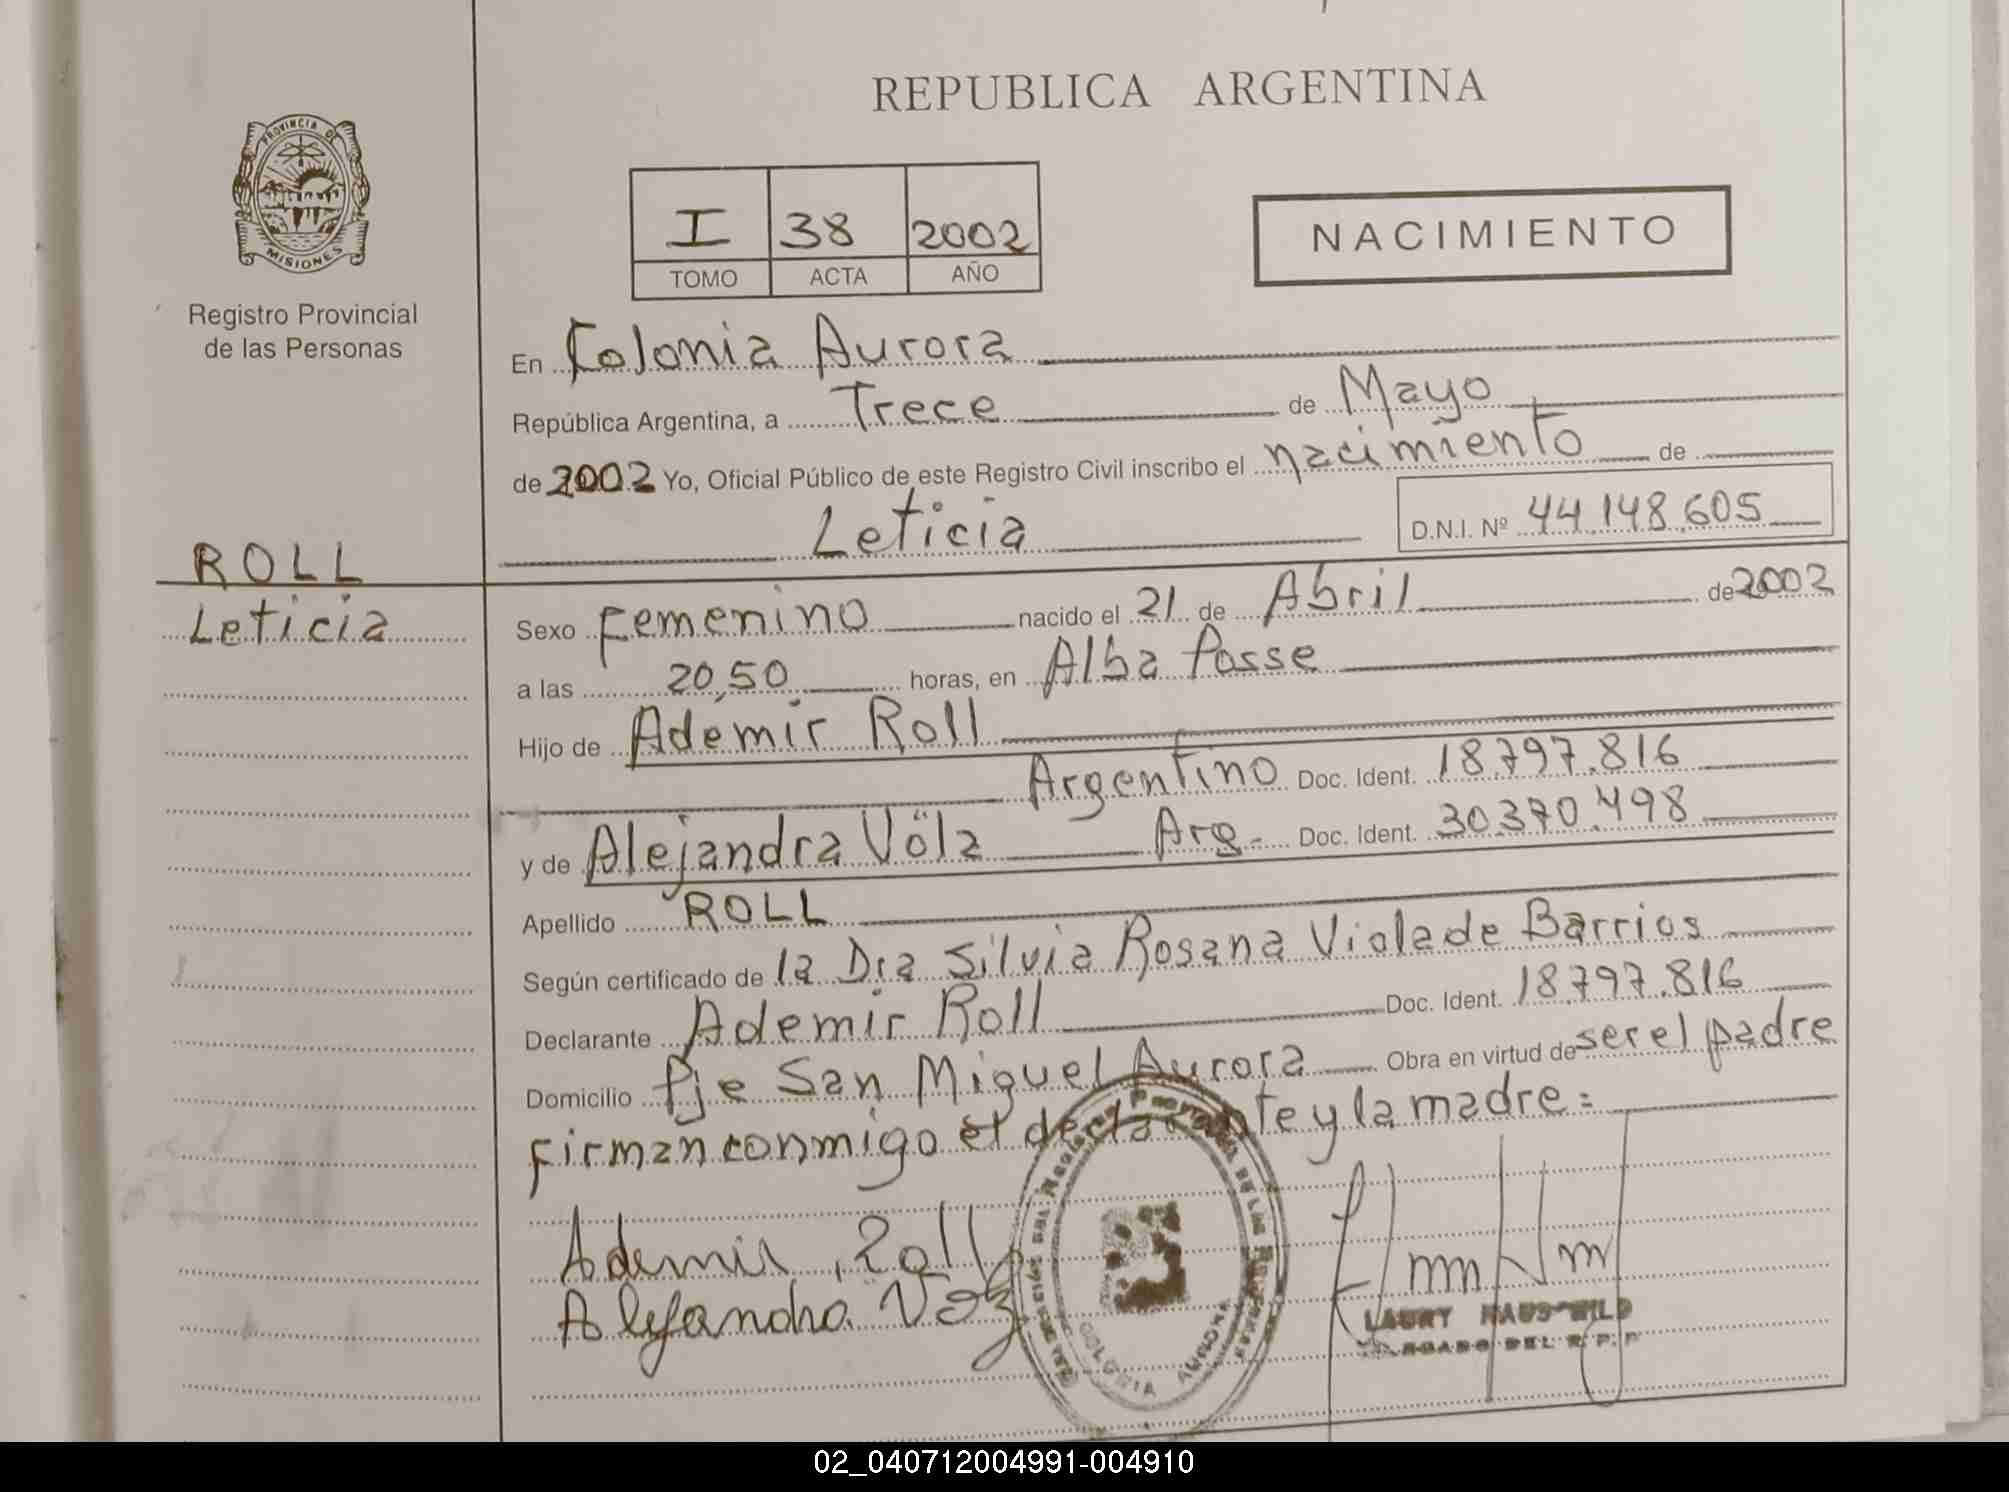 REPUBLICA ARGENTINA
PROVINCIA DE
MISIONES
Registro Provincial
de las Personas
I 38 2002
TOMO ACTA AÑO
NACIMIENTO
En Colonia Aurora
República Argentina, a Trece de Mayo
de 2002 Yo, Oficial Público de este Registro Civil inscribo el nacimiento de
Leticia D.N.I. Nº 44.148.605
ROLL
Leticia
Sexo Femenino nacido el 21 de Abril de 2002
a las 20,50 horas, en Alba Posse
Hijo de Ademir Roll
Argentino Doc. Ident. 18.797.816
y de Alejandra Völz Arg. Doc. Ident. 30.370.498
Apellido ROLL
Según certificado de la Dra Silvia Rosana Viola de Barrios
Declarante Ademir Roll Doc. Ident. 18.797.816
Domicilio Pje San Miguel Aurora Obra en virtud de ser el padre
Firman conmigo el declarante y la madre =
Ademir Roll
Alejandra Völz
COLONIA AURORA
LAURY
DEL R.P.P
02_040712004991-004910